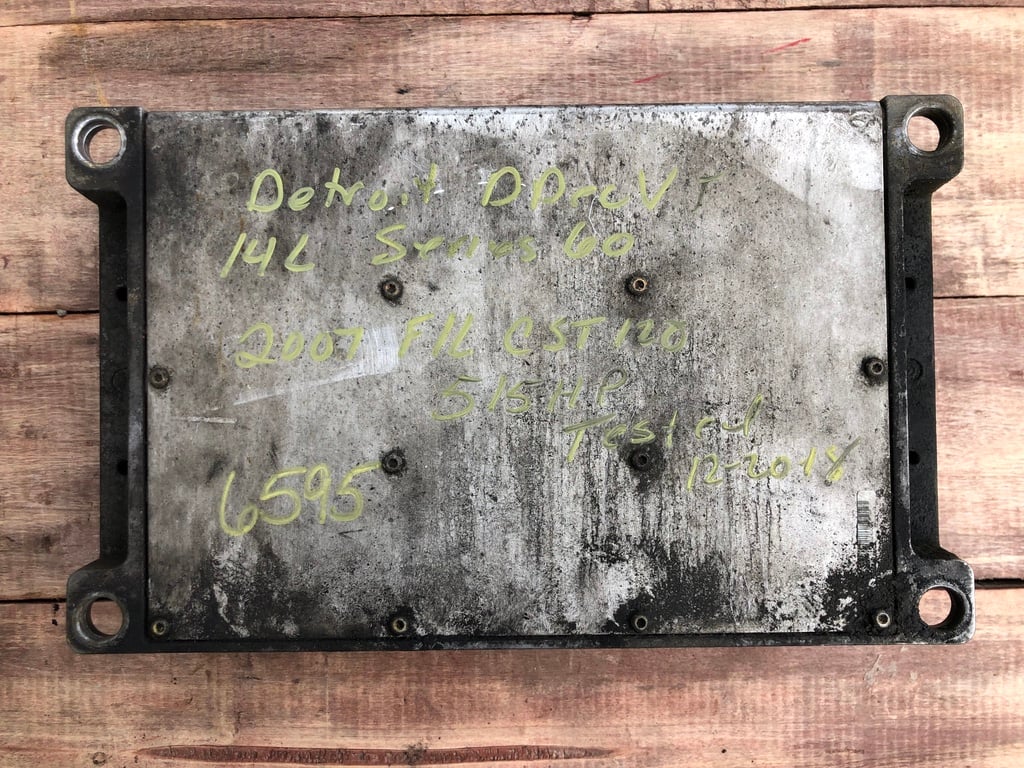 Detroit DDec V
14L Series 60
2007 F/L CST 120
515 HP
Tested
12-2018
6595